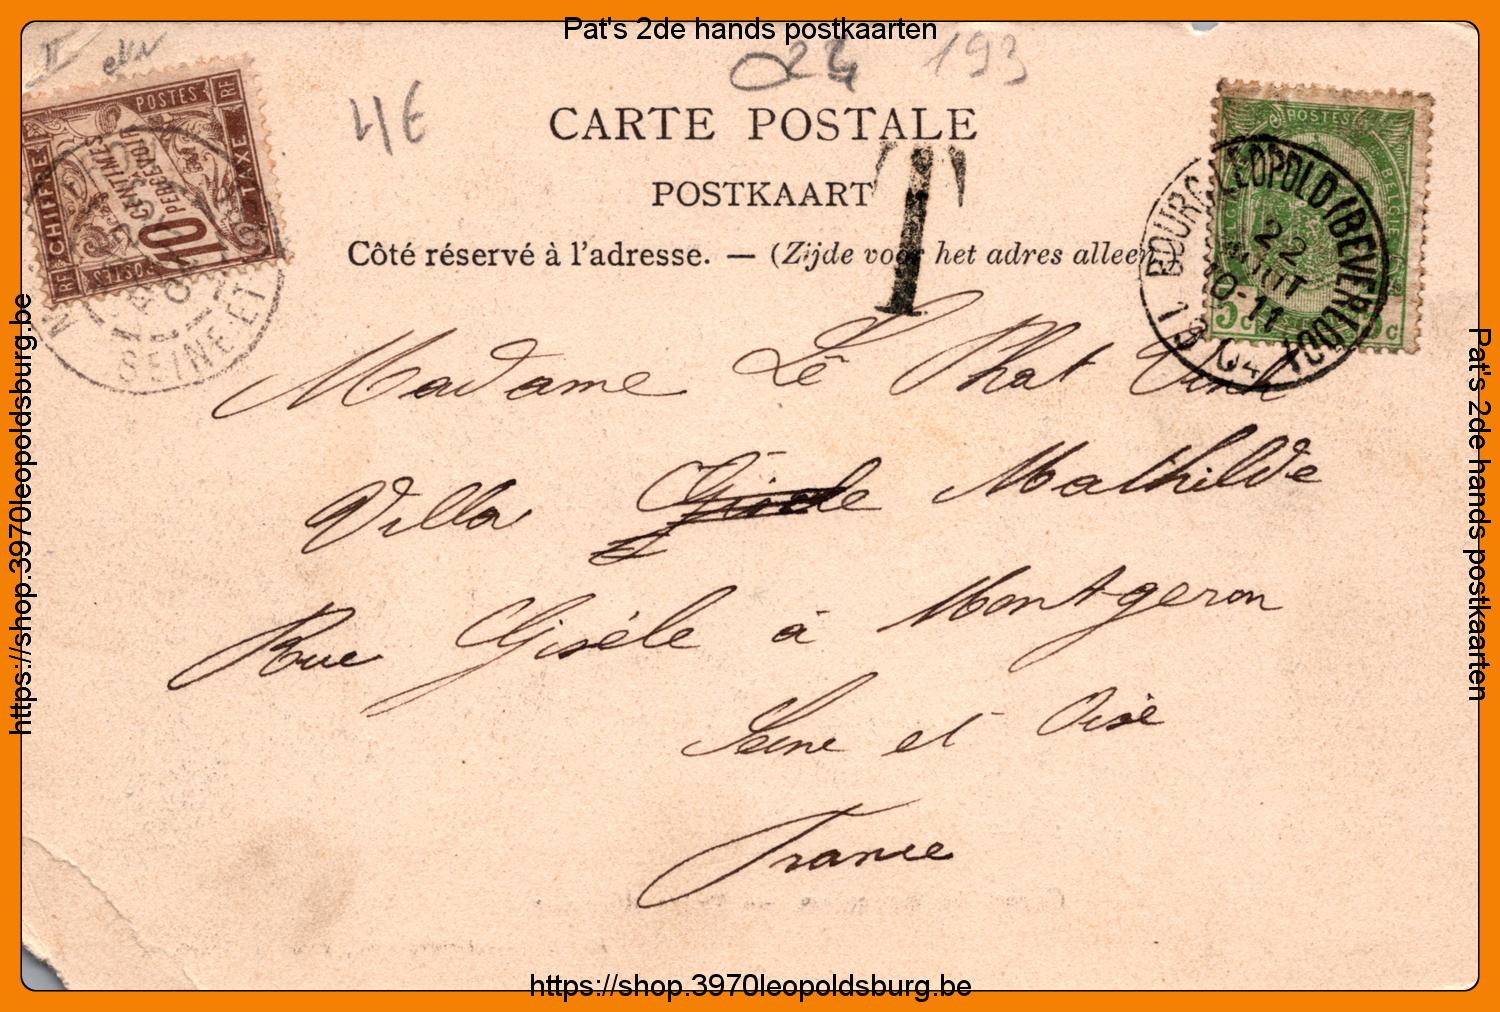 Pat's 2de hands postkaarten
II
024 193
4E
CARTE POSTALE
POSTKAART
T
Côté réservé à l'adresse. — (Zijde voor het adres alleen.)
POSTES
RF
TAXE
CHIFFRE
10
CENTIMES
PERCEVOIR
RF
POSTES
SEINE-ET
POSTES
BELGIE
5c 5c
BOURG-LEOPOLD (BEVERLOO)
22
AOUT
10-11
1904
Madame Lê Phat Vinh
Villa Gisèle Mathilde
Rue Gisèle à Montgeron
Seine et Oise
France
https://shop.3970leopoldsburg.be
Pat's 2de hands postkaarten
https://shop.3970leopoldsburg.be